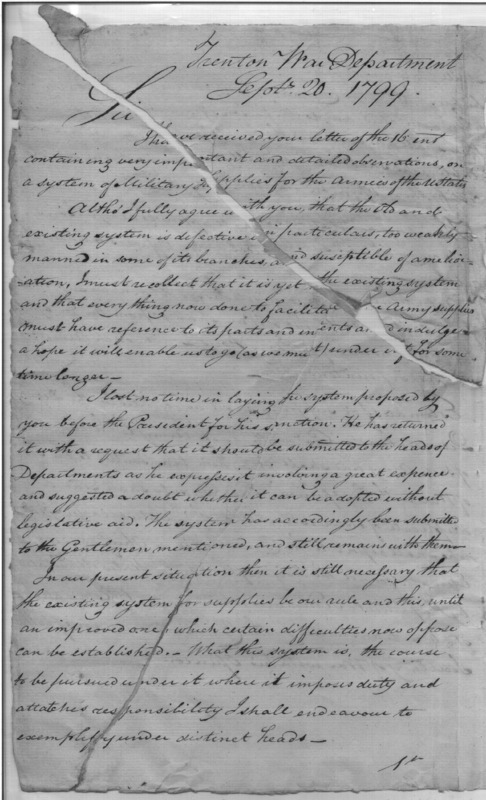 Trenton War Department
Septr. 20. 1799.
Sir
I have received your letter of the 16 inst
containing very important and detailed observations, on
a system of Military Supplies for the Armies of the U States
Altho' I fully agree with you, that the old and
existing system is defective in particulars, too weakly
manned in some of its branches, and susceptible of amelior-
ation, I must recollect that it is yet the existing system
and that every thing now done to facilitate Army supplies
must have reference to its parts and and indulge
a hope it will enable us to go (as we must) under it for some
time longer—
I lost no time in laying the system proposed by
you before the President for his sanction. He has returned
it with a request that it should be submitted to the heads of
Departments as he expresses it involving a great expence
and suggested a doubt whether it can be adopted without
legislative aid. The system has accordingly been submitted
to the Gentlemen mentioned, and still remains with them—
In our present situation then it is still necessary that
the existing system for supplies be our rule and this, until
an improved one, which certain difficulties now oppose
can be established.— What this system is, the course
to be pursued under it where it imposes duty and
attatches responsibility I shall endeavour to
exemplify under distinct heads—